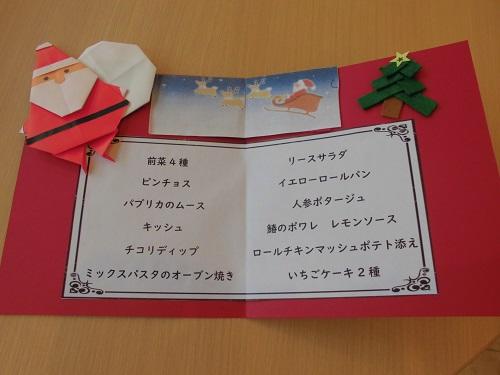 前菜４種
ピンチョス
パプリカのムース
キッシュ
チコリディップ
ミックスパスタのオーブン焼き
リースサラダ
イエローロールパン
人参ポタージュ
鰆のポワレ　レモンソース
ロールチキンマッシュポテト添え
いちごケーキ２種